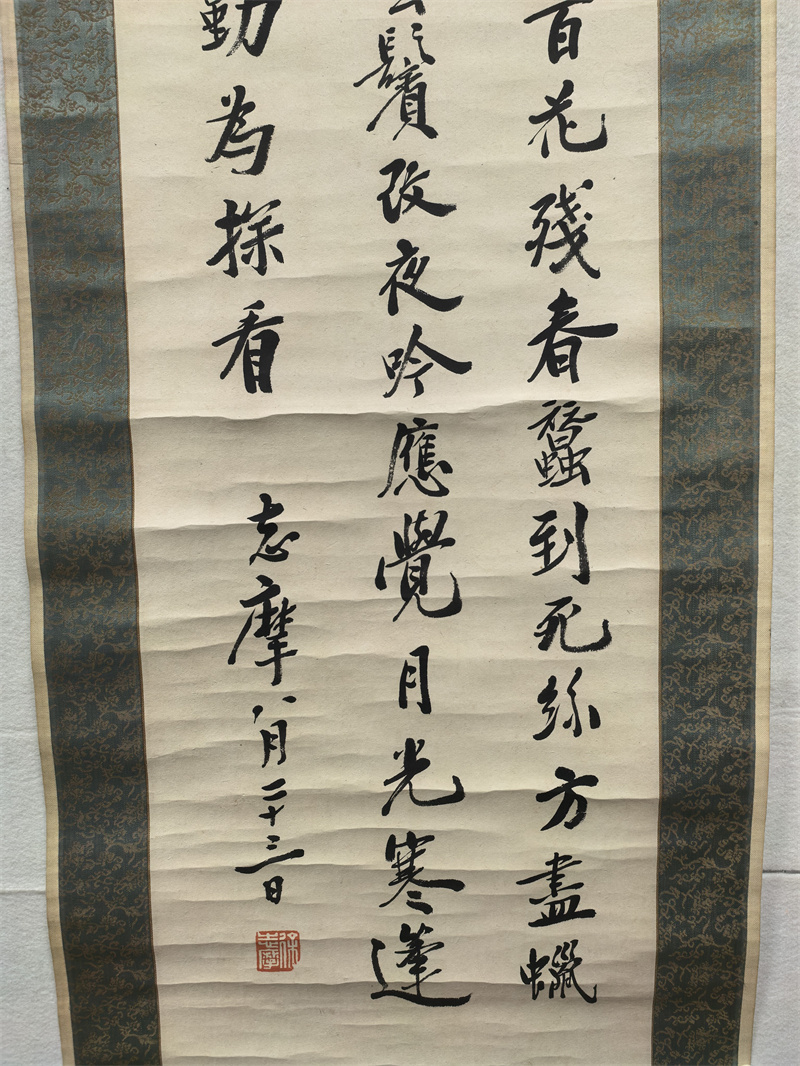 百花殘春蠶到死絲方盡蠟
鬢改夜吟應覺月光寒蓬
動為探看
志摩八月二十三日
徐志摩